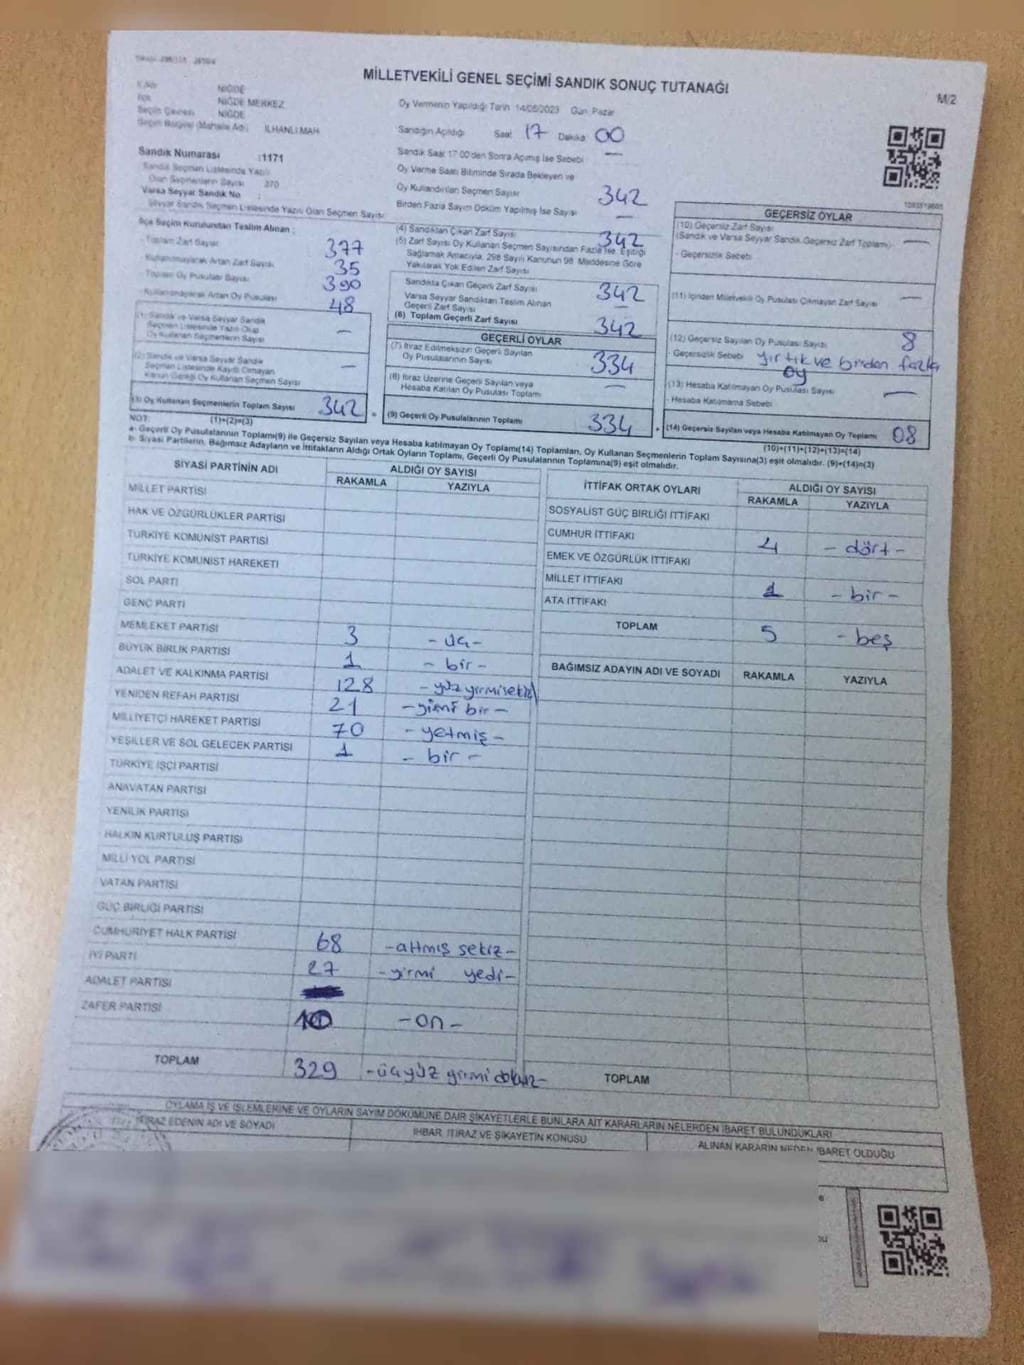 MİLLETVEKİLİ GENEL SEÇİMİ SANDIK SONUÇ TUTANAĞI
M/2
NİĞDE
NİĞDE MERKEZ
Seçim Çevresi NİĞDE
Seçim Bölgesi (Mahalle Adı) İLHANLI MAH
Sandık Numarası :1171
Sandık Seçmen Listesinde Yazılı
Olan Seçmenlerin Sayısı 370
Varsa Seyyar Sandık No :
Seyyar Sandık Seçmen Listesinde Yazılı Olan Seçmen Sayısı
Oy Vermenin Yapıldığı Tarih 14/05/2023 Gün Pazar
Sandığın Açıldığı Saat 17 Dakika 00
Sandık Saat 17:00'den Sonra Açılmış İse Sebebi —
Oy Verme Saati Bitiminde Sırada Bekleyen ve
Oy Kullandırılan Seçmen Sayısı 342
Birden Fazla Sayım Döküm Yapılmış İse Sayısı —
İlçe Seçim Kurulundan Teslim Alınan :
Toplam Zarf Sayısı 377
Kullanılmayarak Artan Zarf Sayısı 35
Toplam Oy Pusulası Sayısı 390
Kullanılmayarak Artan Oy Pusulası 48
(1) Sandık ve Varsa Seyyar Sandık
Seçmen Listesinde Yazılı Olup
Oy Kullanan Seçmenlerin Sayısı —
(2) Sandık ve Varsa Seyyar Sandık
Seçmen Listesinde Kayıtlı Olmayan
Kanun Gereği Oy Kullanan Seçmen Sayısı —
(3) Oy Kullanan Seçmenlerin Toplam Sayısı 342
(1)+(2)=(3)
(4) Sandıktan Çıkan Zarf Sayısı 342
(5) Zarf Sayısı Oy Kullanan Seçmen Sayısından Fazla İse, Eşitliği
Sağlamak Amacıyla, 298 Sayılı Kanunun 98. Maddesine Göre
Yakılarak Yok Edilen Zarf Sayısı —
Sandıkta Çıkan Geçerli Zarf Sayısı 342
Varsa Seyyar Sandıktan Teslim Alınan
Geçerli Zarf Sayısı —
(6) Toplam Geçerli Zarf Sayısı 342
GEÇERLİ OYLAR
(7) İtiraz Edilmeksizin Geçerli Sayılan
Oy Pusulalarının Sayısı 334
(8) İtiraz Üzerine Geçerli Sayılan veya
Hesaba Katılan Oy Pusulası Toplamı —
(9) Geçerli Oy Pusulalarının Toplamı 334
GEÇERSİZ OYLAR
(10) Geçersiz Zarf Sayısı
(Sandık ve Varsa Seyyar Sandık Geçersiz Zarf Toplamı) —
- Geçersizlik Sebebi
(11) İçinden Milletvekili Oy Pusulası Çıkmayan Zarf Sayısı —
(12) Geçersiz Sayılan Oy Pusulası Sayısı 8
- Geçersizlik Sebebi yırtık ve birden fazla
oy
(13) Hesaba Katılmayan Oy Pusulası Sayısı —
- Hesaba Katılmama Sebebi
(14) Geçersiz Sayılan veya Hesaba Katılmayan Oy Toplamı 08
(10)+(11)+(12)+(13)=(14)
NOT:
a- Geçerli Oy Pusulalarının Toplamı(9) ile Geçersiz Sayılan veya Hesaba katılmayan Oy Toplamı(14) Toplamları, Oy Kullanan Seçmenlerin Toplam Sayısına(3) eşit olmalıdır. (9)+(14)=(3)
b- Siyasi Partilerin, Bağımsız Adayların ve İttifakların Aldığı Ortak Oyların Toplamı, Geçerli Oy Pusulalarının Toplamına(9) eşit olmalıdır.
SİYASİ PARTİNİN ADI ALDIĞI OY SAYISI
RAKAMLA YAZIYLA
MİLLET PARTİSİ
HAK VE ÖZGÜRLÜKLER PARTİSİ
TÜRKİYE KOMÜNİST PARTİSİ
TÜRKİYE KOMÜNİST HAREKETİ
SOL PARTİ
GENÇ PARTİ
MEMLEKET PARTİSİ 3 -üç-
BÜYÜK BİRLİK PARTİSİ 1 -bir-
ADALET VE KALKINMA PARTİSİ 128 -yüz yirmisekiz
YENİDEN REFAH PARTİSİ 21 -yirmi bir-
MİLLİYETÇİ HAREKET PARTİSİ 70 -yetmiş-
YEŞİLLER VE SOL GELECEK PARTİSİ 1 -bir-
TÜRKİYE İŞÇİ PARTİSİ
ANAVATAN PARTİSİ
YENİLİK PARTİSİ
HALKIN KURTULUŞ PARTİSİ
MİLLİ YOL PARTİSİ
VATAN PARTİSİ
GÜÇ BİRLİĞİ PARTİSİ
CUMHURİYET HALK PARTİSİ 68 -altmış sekiz-
İYİ PARTİ 27 -yirmi yedi-
ADALET PARTİSİ
ZAFER PARTİSİ 10 -on-
TOPLAM 329 -üçyüz yirmi dokuz-
İTTİFAK ORTAK OYLARI ALDIĞI OY SAYISI
RAKAMLA YAZIYLA
SOSYALİST GÜÇ BİRLİĞİ İTTİFAKI
CUMHUR İTTİFAKI 4 -dört-
EMEK VE ÖZGÜRLÜK İTTİFAKI
MİLLET İTTİFAKI 1 -bir-
ATA İTTİFAKI
TOPLAM 5 -beş
BAĞIMSIZ ADAYIN ADI VE SOYADI RAKAMLA YAZIYLA
TOPLAM
OYLAMA İŞ VE İŞLEMLERİNE VE OYLARIN SAYIM DÖKÜMÜNE DAİR ŞİKAYETLERLE BUNLARA AİT KARARLARIN NELERDEN İBARET BULUNDUKLARI
İTİRAZ EDENİN ADI VE SOYADI İHBAR, İTİRAZ VE ŞİKAYETİN KONUSU ALINAN KARARIN NEDEN İBARET OLDUĞU